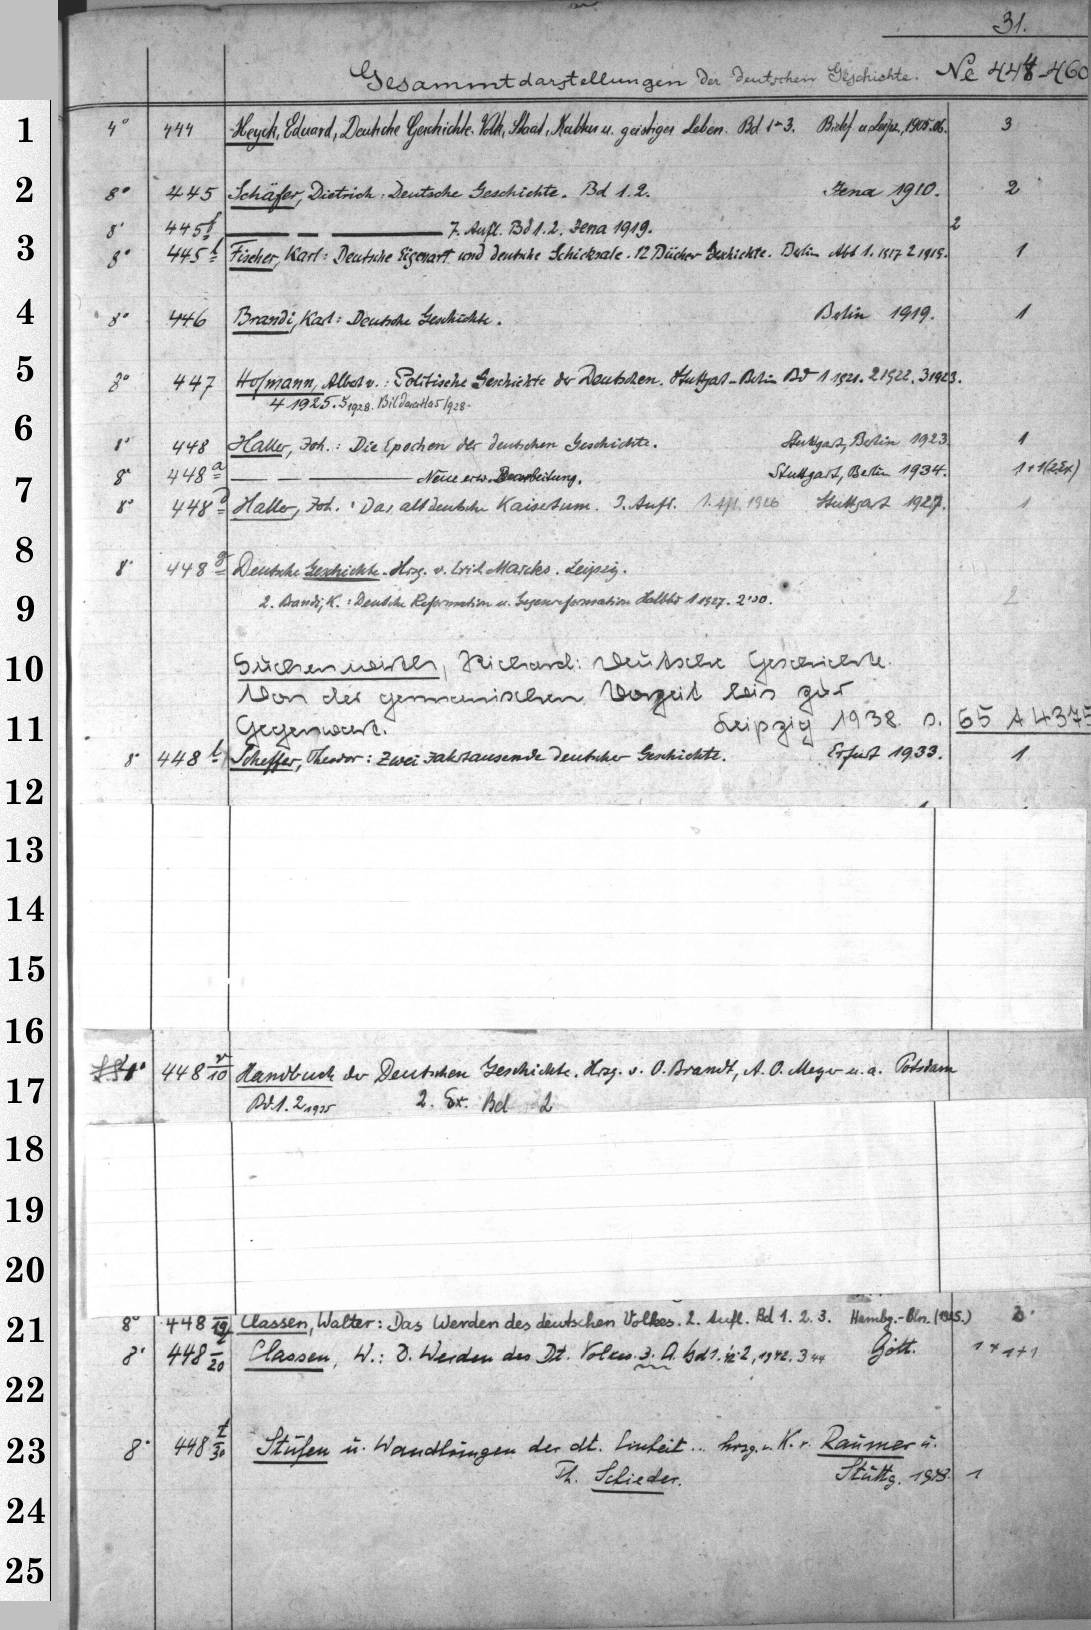 31.
Gesammtdarstellungen der deutschen Geschichte. Ne 444-460
1 4° 444 Heyck, Eduard, Deutsche Geschichte. Volk, Staat, Kultur u. geistiges Leben. Bd 1-3. Bielef. u. Leipz., 1905.06. 3
2 8° 445 Schäfer, Dietrich: Deutsche Geschichte. Bd 1.2. Jena 1910. 2
8° 445 f — — — 7. Aufl. Bd 1.2. Jena 1919. 2
3 8° 445 Fischer, Karl: Deutsche Eigenart und deutsche Schicksale. 12 Bücher Geschichte. Berlin Abt 1. 1917 2 1919. 1
4 8° 446 Brandi, Karl: Deutsche Geschichte. Berlin 1919. 1
5 8° 447 Hofmann, Albert v.: Politische Geschichte der Deutschen. Stuttgart-Berlin Bd 1 1921. 2 1922. 3 1923.
4 1925. 5 1928. 1928.
6 8° 448 Haller, Joh.: Die Epochen der deutschen Geschichte. Stuttgart, Berlin 1923 1
8° 448 a — — — Neue erw. Bearbeitung. Stuttgart, Berlin 1934. 1+1(2.Ex)
7 8° 448 Haller, Joh.: Das altdeutsche Kaisertum. 3. Aufl. 1. Afl. 1926 Stuttgart 1927. 1
8 8° 448 g Deutsche Geschichte. Hrsg. v. Erich Marcks. Leipzig.
9 2. Brandi, K.: Deutsche Reformation u. Gegenreformation Halbbd 1 1927. 2 2
10 Suchenwirth, Richard: Deutsche Geschichte.
Von der germanischen Vorzeit bis zur
11 Gegenwart. Leipzig 1938. s. 65 A 4375
8° 448 l Scheffer, Theodor: Zwei Jahrtausende deutscher Geschichte. Erfurt 1933. 1
12
13
14
15
16
4° 448 r/10 Handbuch der Deutschen Geschichte. Hrsg. v. O. Brandt, A. O. Meyer u. a. Potsdam
17 Bd. 1. 2 1935 2. Ex. Bd 2
18
19
20
21 8° 448 19 Classen, Walter: Das Werden des deutschen Volkes. 2. Aufl. Bd 1. 2. 3. Hambg.-Bln. 3
8° 448 20 Classen, W.: D. Werden des Dt. Volkes. 3. A. Bd 1. 42 2, 1942. 3 44 Gött. 1+1+1
22
23 8° 448 t/30 Stufen u. Wandlungen der dt. Einheit... hrsg. v. K. v. Raumer u.
Th. Schieder. Stuttg. 1943. 1
24
25